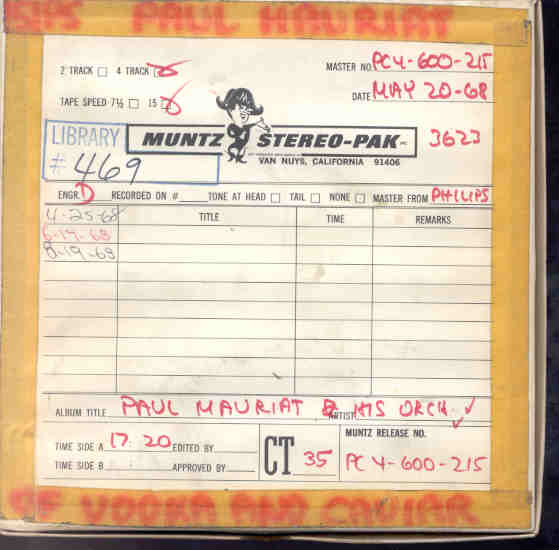 PAUL MAURIAT
2 TRACK 4 TRACK
MASTER NO. PC4-600-215
TAPE SPEED 7½ 15
DATE MAY 20-68
LIBRARY
# 469
MUNTZ STEREO-PAK INC.
3623
VAN NUYS, CALIFORNIA 91406
ENGR. D RECORDED ON # TONE AT HEAD TAIL NONE MASTER FROM PHILIPS
4-25-68 TITLE TIME REMARKS
6-19-68
8-19-68
ALBUM TITLE PAUL MAURIAT & HIS ORCH
ARTIST
TIME SIDE A 17:20 EDITED BY
TIME SIDE B APPROVED BY
CT 35
MUNTZ RELEASE NO.
PC 4-600-215
OF VODKA AND CAVIAR